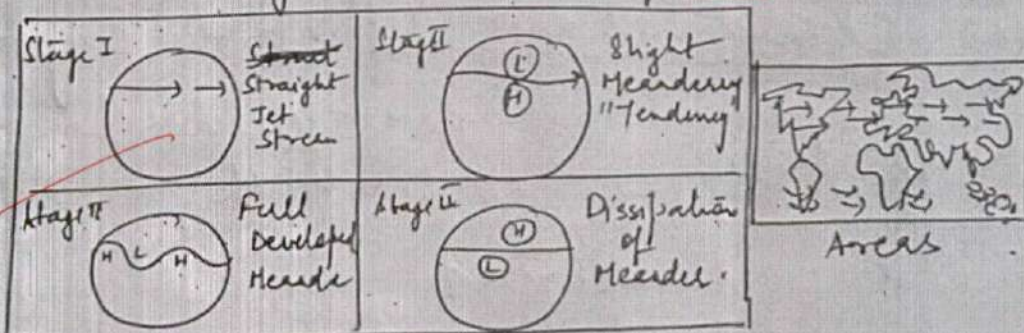 Stage I
Straight
Jet
Stream
Stage II
L
H
Slight
Meandering
"Tendency"
Stage II
H L H
Full
Developed
Meande
Stage II
H
L
Dissipation
of
Meander.
Areas